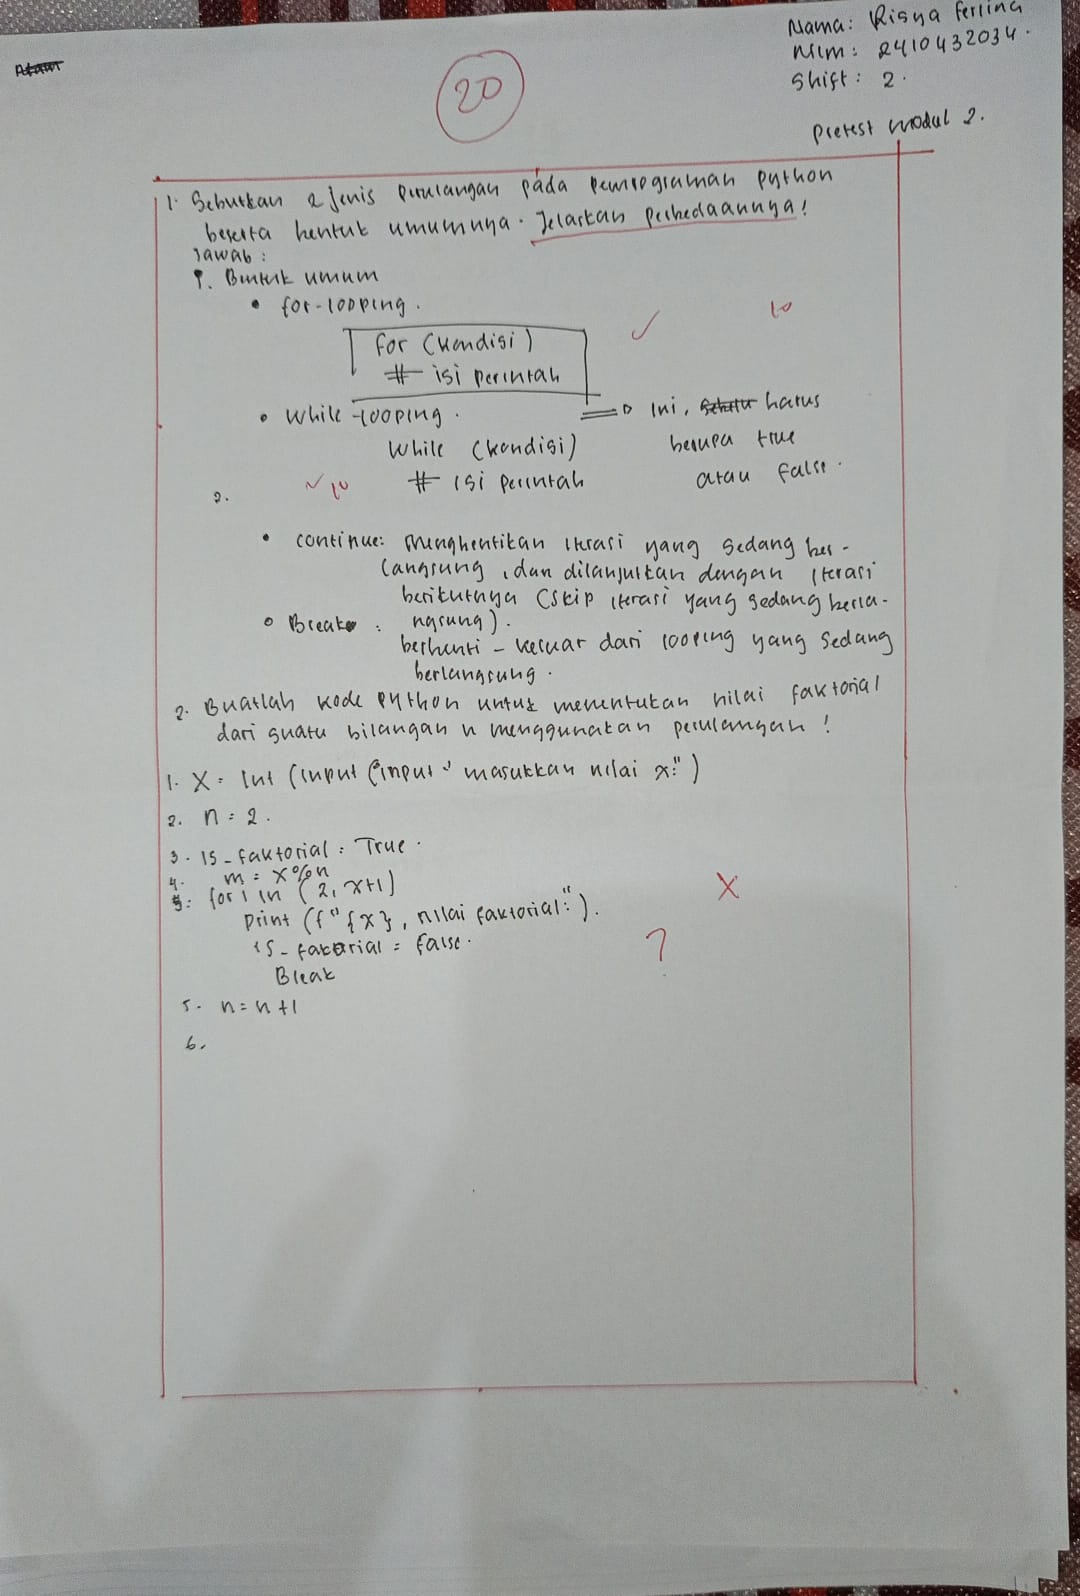 Nama: Risya Ferlina
Nim: 2410432034.
Shift: 2.
20
Pretest modul 2.
1. Sebutkan 2 Jenis Perulangan pada pemrograman python
beserta bentuk umumnya. Jelaskan Perbedaannya!
Jawab:
1. Bentuk umum
• for-looping.
10
for (kondisi)
# isi perintah
• While-looping.
=> Ini, harus
While (kondisi)
berupa true
# isi perintah
atau false.
2.
10
• continue: menghentikan iterasi yang sedang ber-
langsung, dan dilanjutkan dengan iterasi
berikutnya (skip iterasi yang sedang berla-
ngsung).
• Break:
berhenti - keluar dari looping yang sedang
berlangsung.
2. Buatlah kode python untuk menentukan nilai faktorial
dari suatu bilangan n menggunakan perulangan!
1. X = Int (input ("input masukkan nilai x:")
2. n = 2.
3. Is_faktorial = True.
4. m = x%n
5: for i in (2, x+1)
Print (f"{x}, nilai faktorial:").
is_faktorial = false.
Break
X
?
5. n = n+1
6.